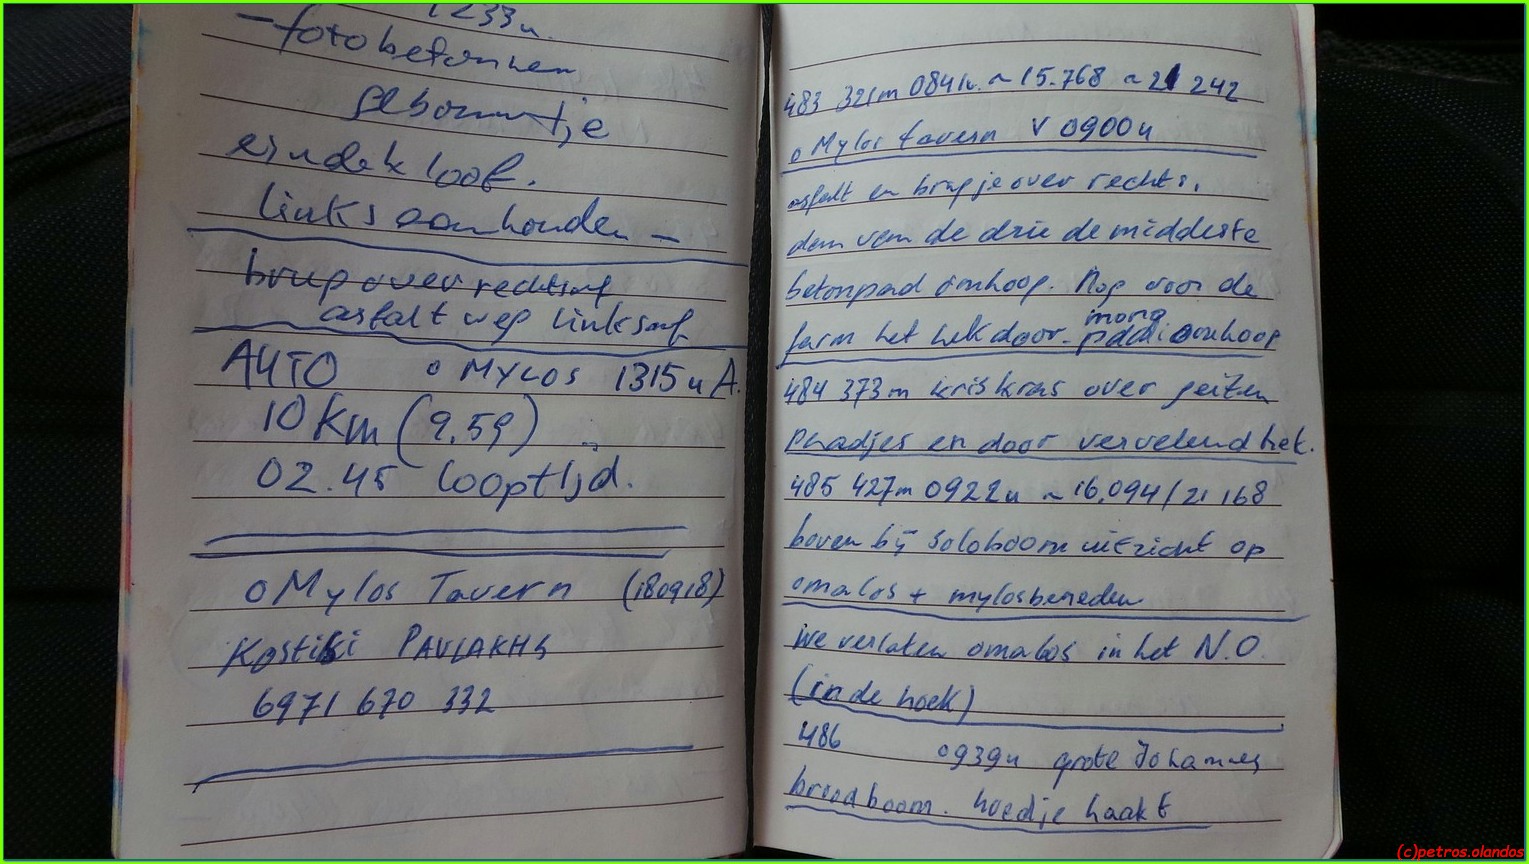 1233u.
- foto betonnen
gebouwtje
einde kloof.
links aanhouden -
brug over rechtsaf
asfalt weg linksaf
AUTO o MYLOS 1315u A.
10 km (9,59)
02.45 looptijd.
o Mylos Tavern (180918)
Kostiki PAVLAKHS
6971 670 332
483 321m 0841u. ~ 15.768 ~ 21 242
o Mylos tavern V 0900u
asfalt en brugje over rechts,
dan van de drie de middelste
betonpad omhoog. Nog voor de
farm het hek door. omhoog
484 373m kriskras over geiten
paadjes en door vervelend hek.
485 427m 0922u ~ 16,094/21 168
boven bij soloboom uitzicht op
omalos + mylos beneden
We verlaten omalos in het N.O.
(in de hoek)
486 0939u grote Johannes
broodboom. hoedje haakt
(c)petros.olandos